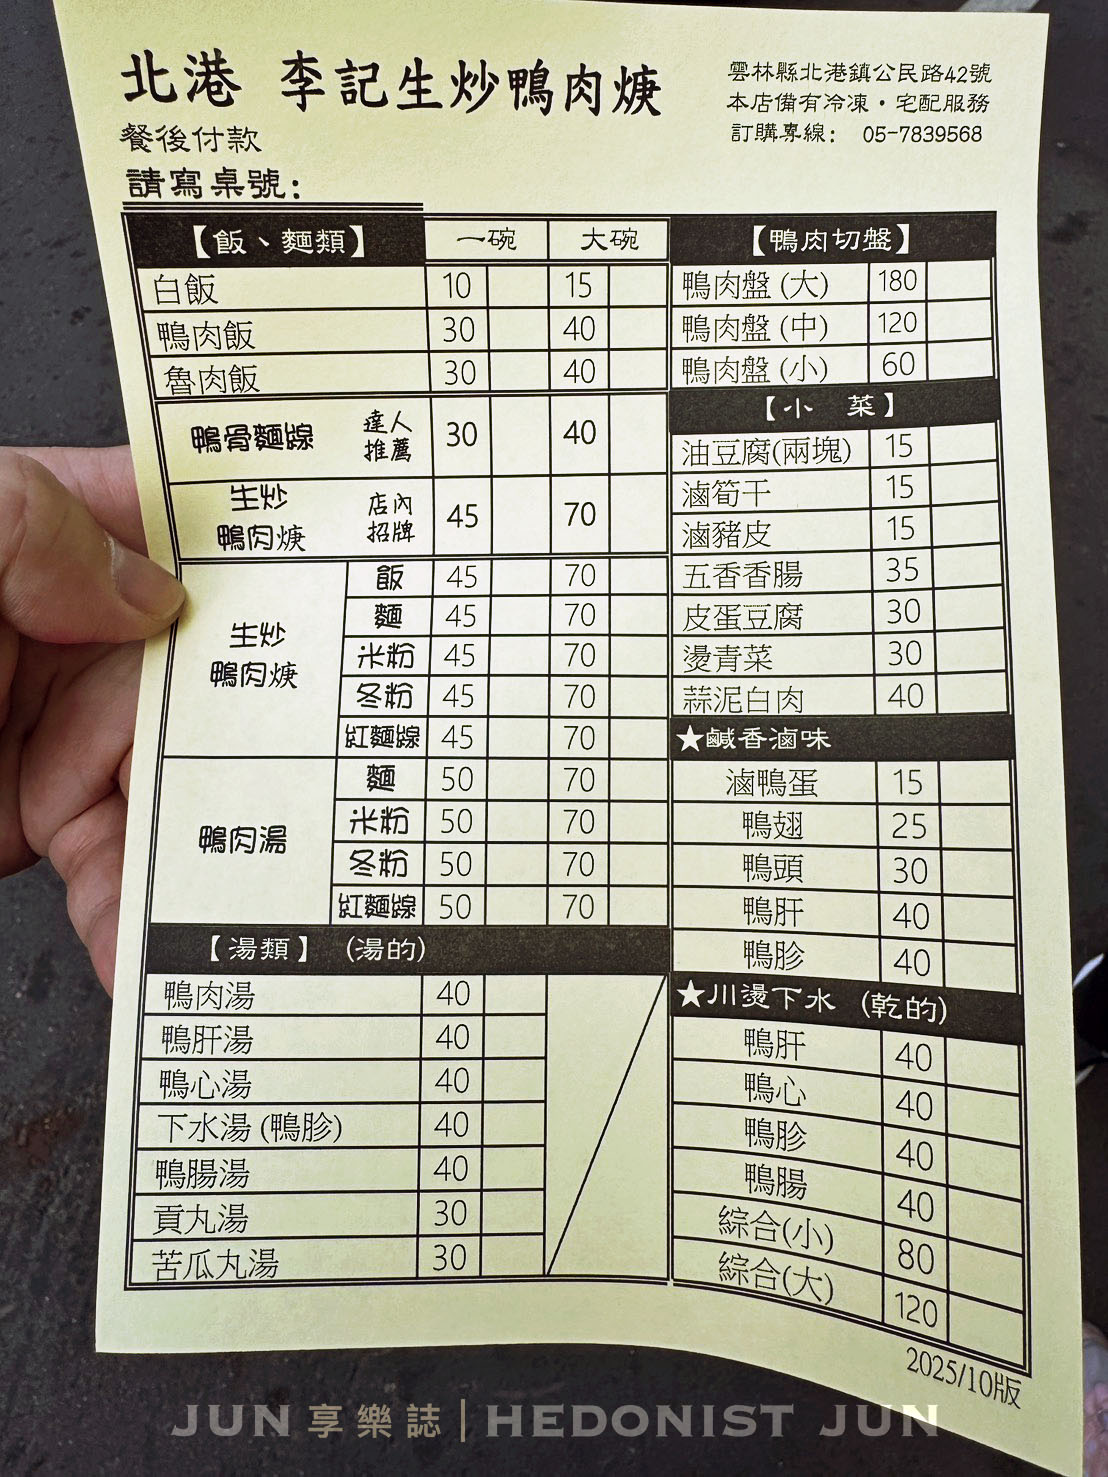 北港 李記生炒鴨肉焿
雲林縣北港鎮公民路42號
本店備有冷凍・宅配服務
訂購專線： 05-7839568
餐後付款
請寫桌號：
【飯、麵類】 一碗 大碗
白飯 10 15
鴨肉飯 30 40
魯肉飯 30 40
鴨骨麵線 達人推薦 30 40
生炒鴨肉焿 店內招牌 45 70
生炒鴨肉焿
飯 45 70
麵 45 70
米粉 45 70
冬粉 45 70
紅麵線 45 70
鴨肉湯
麵 50 70
米粉 50 70
冬粉 50 70
紅麵線 50 70
【湯類】 (湯的)
鴨肉湯 40
鴨肝湯 40
鴨心湯 40
下水湯(鴨胗) 40
鴨腸湯 40
貢丸湯 30
苦瓜丸湯 30
【鴨肉切盤】
鴨肉盤(大) 180
鴨肉盤(中) 120
鴨肉盤(小) 60
【小 菜】
油豆腐(兩塊) 15
滷筍干 15
滷豬皮 15
五香香腸 35
皮蛋豆腐 30
燙青菜 30
蒜泥白肉 40
★鹹香滷味
滷鴨蛋 15
鴨翅 25
鴨頭 30
鴨肝 40
鴨胗 40
★川燙下水 (乾的)
鴨肝 40
鴨心 40
鴨胗 40
鴨腸 40
綜合(小) 80
綜合(大) 120
2025/10版
JUN享樂誌|HEDONIST JUN